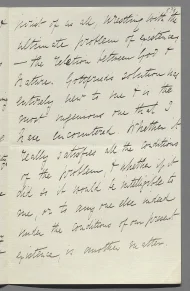 most of us all wrestling with the
ultimate problem of existence
— the relation between God &
Nature. Gottfrieds solution was
entirely new to me & is the
most ingenious one that I
have encountered Whether it
really satisfies all the conditions
of the problem, & whether if it
did so it would be intelligible to
me, or to any one else under
under the conditions of our present
existence is another matter